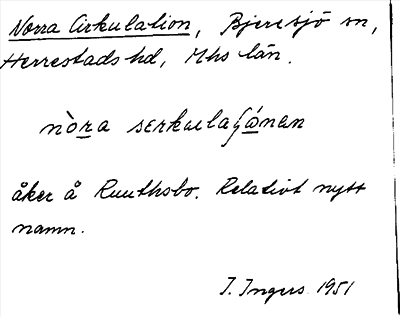 Norra Cirkulation, Bjeresjö sn,
Herrestads hd, Mhs län.
nòra serkulaʃónen
åker å Ruuthsbo. Relativt nytt
namn.
I. Ingers 1951